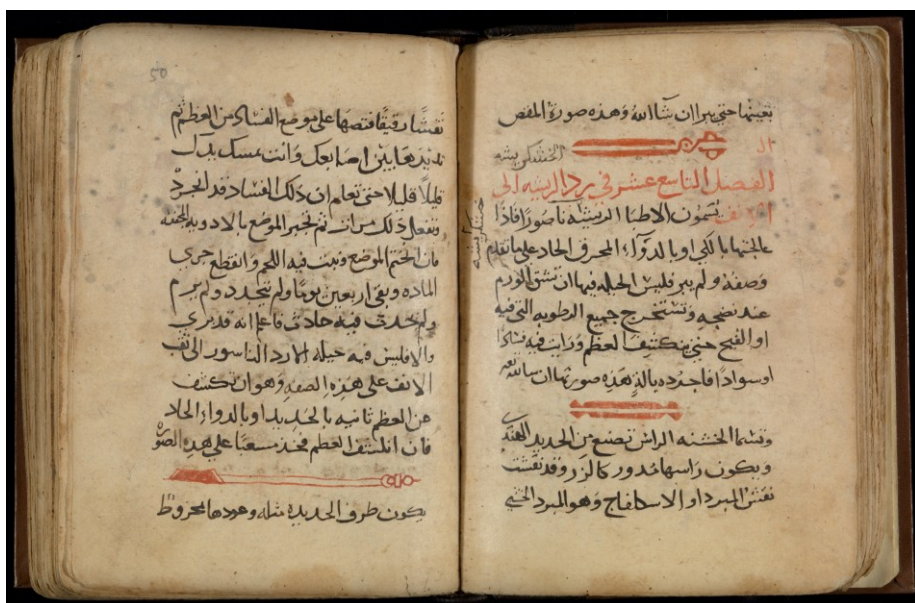 بقيتها حتى يبرا ان شا الله وهذه صورة المقص
الفصل التاسع عشر في رد الريشه الى
الانف تسمون الاطبا الريشه ناصورا فاذا
عالجتها بالكي او بالدوآء المحرق الحاد على ما تقدم
وصفه ولم يبر فليس الحيله فيها ان تشق الورم
عند نضجه وتستخرج جميع الرطوبه التي فيه
او القيح حتى ينكشف العظم ورايت فيه فسادا
او سوادا فاجرده بالة هذه صورتها ان شا الله
وتسما الخشنه الراس تصنع من الحديد الهندي
ويكون راسها مدور كالزر وقد نقشت
نقش المبرد او الاسكفاج وهو المبرد
50
نقشا رقيقا فتضعها على موضع الفساد من العظم ثم
تديرها بين اصابعك وانت تمسك يدك
قليلا قليلا حتى تعلم ان ذلك الفساد قد انجرد
وتفعل ذلك مرات ثم تجبر الموضع بالادويه
فان الختم الموضع ونبت فيه اللحم وانقطع جري
الماده وبقي اربعين يوما ولم يتجدد ولم يرم
ولم يحدث فيه حادث فاعلم انه قد بري
والا فليس فيه حيله الا رد الناسور الى ثقب
الانف على هذه الصفه وهو ان تكشف
عن العظم ثانيه بالحديد او بالدواء الحاد
فان انكشف العظم فخذ مسعبا على هذه الصوره
يكون طرف الحديده مثله وعودها مخروط